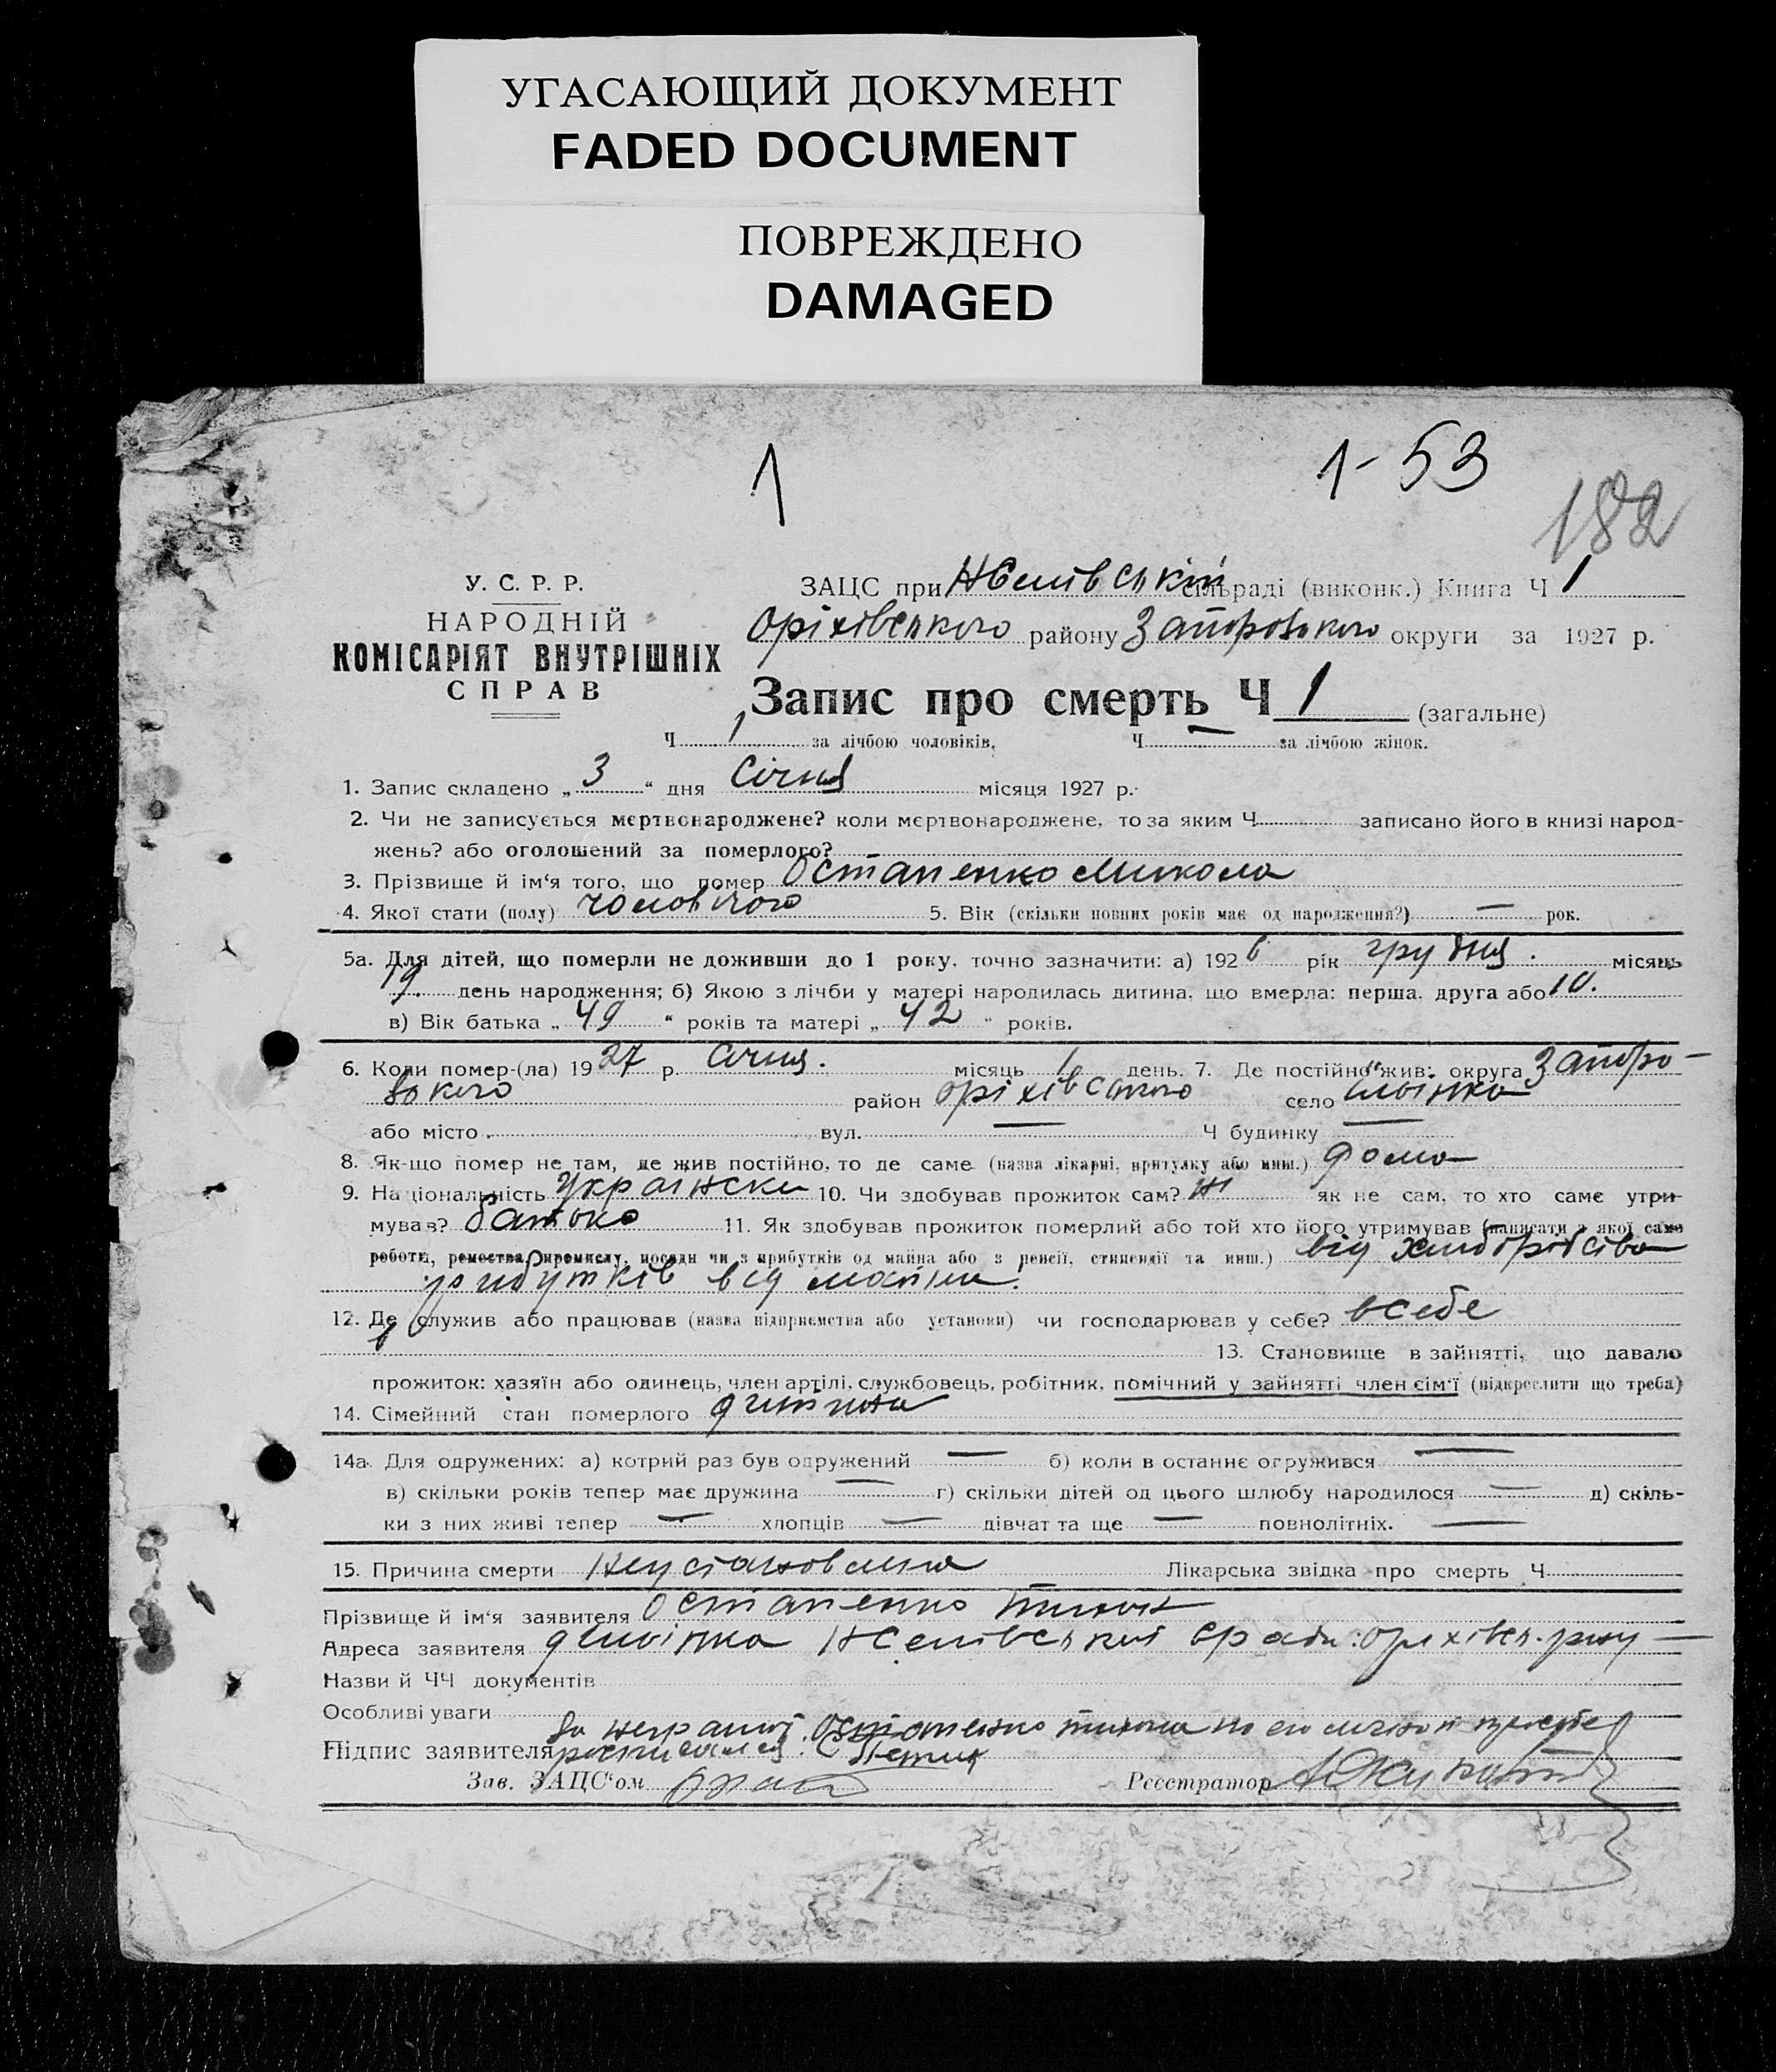 УГАСАЮЩИЙ ДОКУМЕНТ
FADED DOCUMENT
ПОВРЕЖДЕНО
DAMAGED
1
1-53
182
У. С. Р. Р.
НАРОДНІЙ
КОМІСАРІЯТ ВНУТРІШНІХ
СПРАВ
ЗАЦС при сільраді (виконк.) Книга Ч 1
Оріхівського району Запорозького округи за 1927 р.
Запис про смерть Ч 1 (загальне)
Ч 1 за лічбою чоловіків, Ч — за лічбою жінок.
1. Запис складено „ 3 “ дня Січня місяця 1927 р.
2. Чи не записується мертвонароджене? коли мертвонароджене, то за яким Ч записано його в книзі народ-
жень? або оголошений за померлого?
3. Прізвище й ім‘я того, що помер Остапенко Микола
4. Якої стати (полу) чоловічого 5. Вік (скільки повних років має од народження?) — рок.
5а. Для дітей, що померли не доживши до 1 року, точно зазначити: а) 1926 рік грудня місяць
19 день народження; б) Якою з лічби у матері народилась дитина, що вмерла: перша, друга або 10.
в) Вік батька „ 49 “ років та матері „ 42 “ років.
6. Коли помер-(ла) 1927 р. Січня. місяць 1 день. 7. Де постійно жив: округа Запоро-
зького район Оріхівського село
або місто вул. — Ч будинку —
8. Як-що помер не там, де жив постійно, то де саме (назва лікарні, притулку або инш.) дома
9. Національність 10. Чи здобував прожиток сам? ні як не сам, то хто саме утри-
мував? батько 11. Як здобував прожиток померлий або той хто його утримував (написати з якої саме
роботи, ремества, промислу, посади чи з прибутків од майна або з пенсії, стипендії та инш.) від хліборобства
прибутків від майна.
12. Де служив або працював (назва підприємства або установи) чи господарював у себе? в себе
13. Становище в зайнятті, що давало
прожиток: хазяїн або одинець, член артілі, службовець, робітник, помічний у зайнятті член сім‘ї (підкреслити що треба)
14. Сімейний стан померлого дитина
14а. Для одружених: а) котрий раз був одружений — б) коли в останнє огружився —
в) скільки років тепер має дружина — г) скільки дітей од цього шлюбу народилося — д) скіль-
ки з них живі тепер — хлопців — дівчат та ще — повнолітніх. —
15. Причина смерти Лікарська звідка про смерть Ч
Прізвище й ім‘я заявителя Остапенко Тихон
Адреса заявителя
Назви й ЧЧ документів
Особливі уваги
Підпис заявителя
Зав. ЗАЦС‘ом Реєстратор